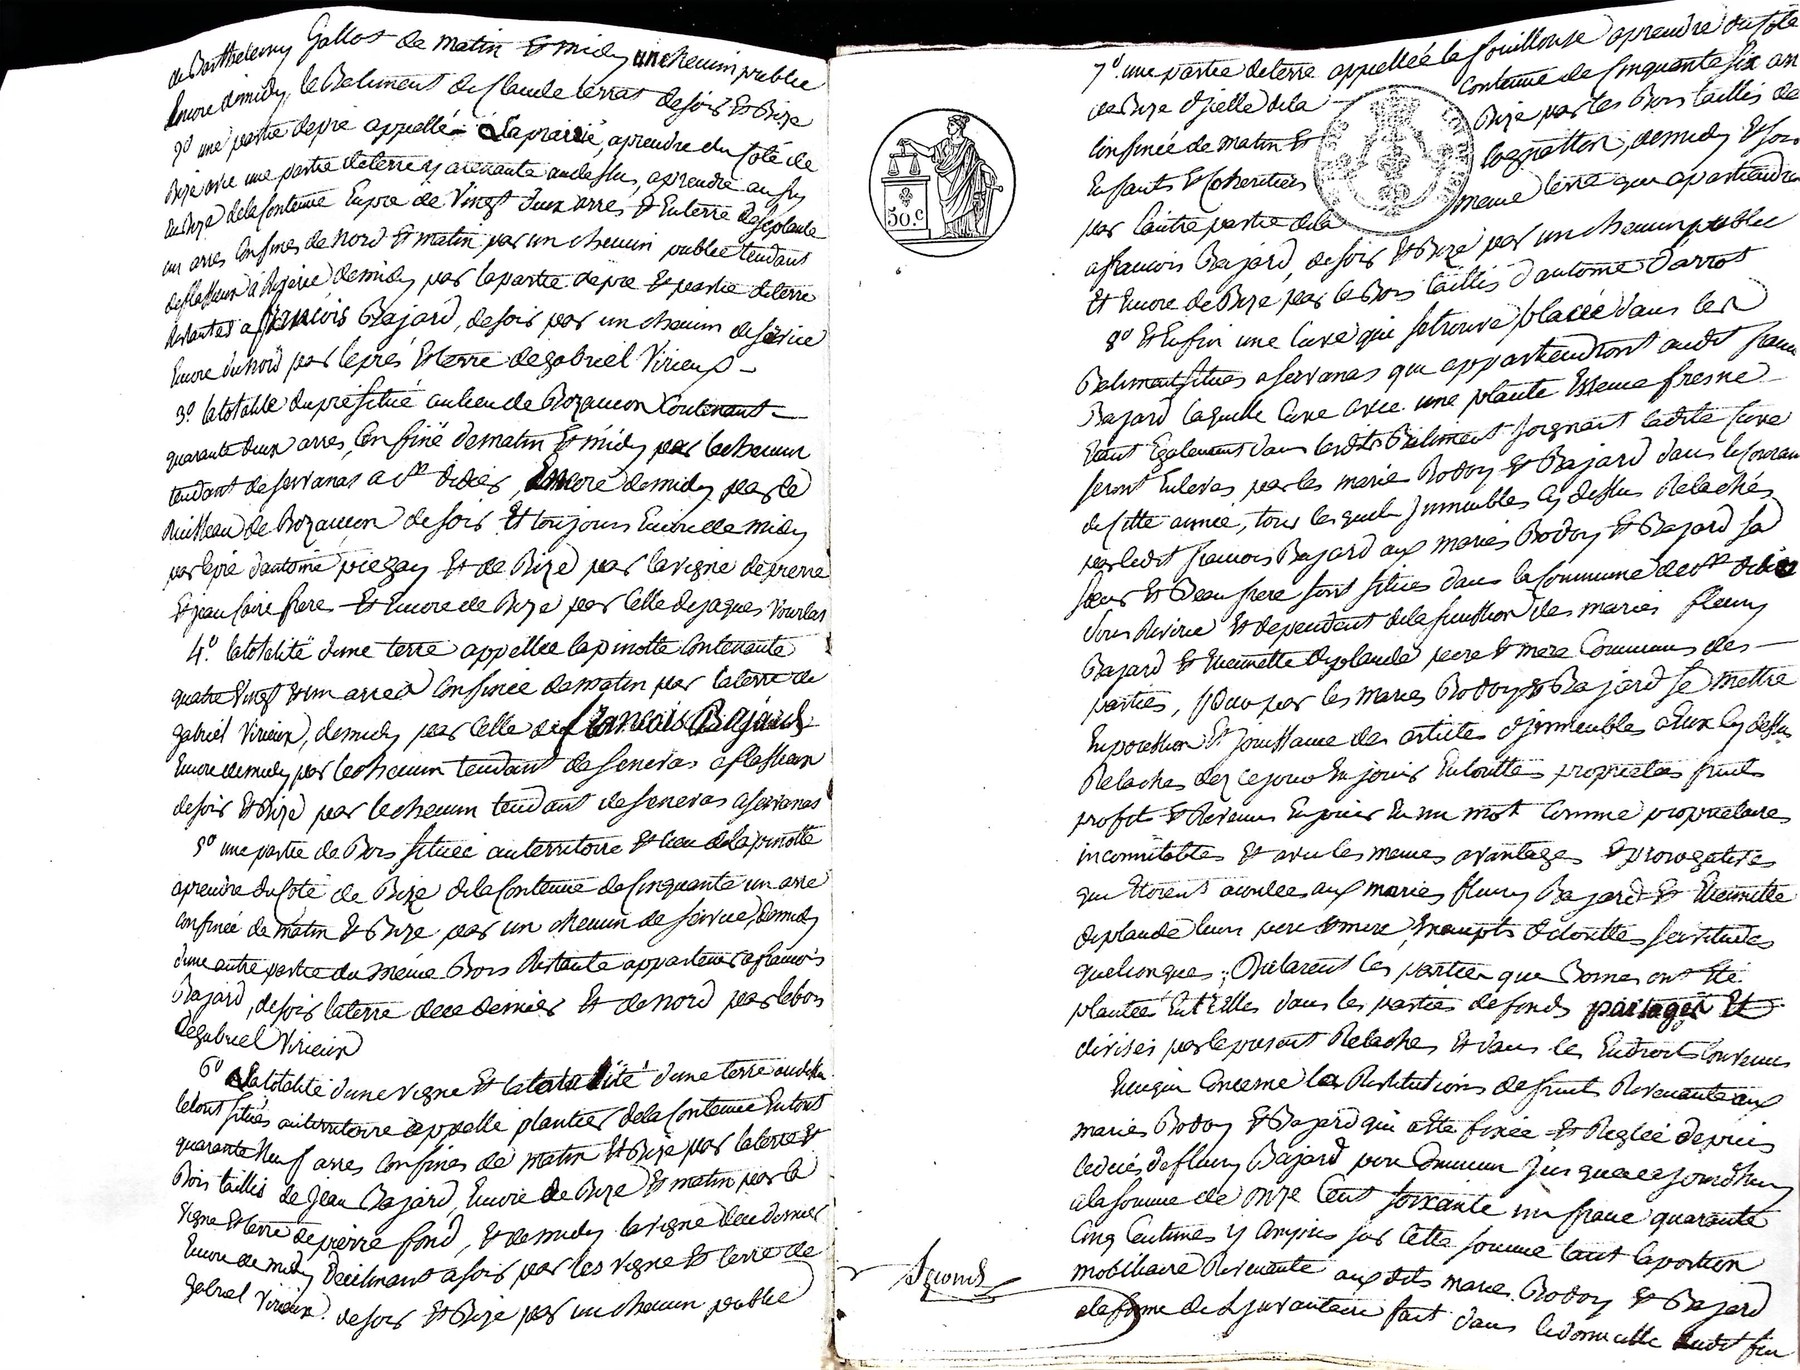 de Barthelemy Gallot de matin et midy un chemin public
Encore de midy, le Batiment de Claude terrat de soir et Bize
2º une partie de pré appellé La prairie, aprendre du Coté de
Bize avec une partie de terre y arenante au dessus, aprendre aussy
du Bize de la Contenue En pré de Vingt deux arres et En terre de
un arres Confinés de Nord et matin par un chemin public tendant
à Riverie de midy par la partie de pré et partie de terre
Restantes a francois Bajard, de soir par un chemin de service
Encore du Nord par le pré et terre de gabriel Virieux
3º. la totalité du pré Situé au lieu de Rozancon Contenant
quarante deux arres, Confiné de matin et midy par le chemin
tendant de servanas a St didier, Encore de midy par le
Ruisseau de Rozancon de soir Et toujours Encore de midy
par le pré d'antoine piegay et de Bize par la vigne de pierre
Et jean faire frere Et Encore de Bize par Celle de jaques Vourlat
4º. la totalité d'une terre appellée la pinotte Contenante
quatre Vingt et un arres Confinée de matin par la terre de
gabriel Virieux, de midy par Celle de francois Bajard
Encore de midy par le chemin tendant de seneras a
de soir et Bize par le chemin tendant de seneras a servanas
5º une partie de Bois Située au territoire et lieu de la pinotte
aprendre du Coté de Bize de la Contenue de Cinquante un arre
confinée de matin et Bize par un chemin de service, de midy
d'une autre partie du même Bois Restante appartenir a francois
Bajard, de soir la terre de ce dernier et de nord par le bois
de gabriel Virieux
6º La totalité d'une vigne Et la totalité d'une terre au dessus
le tout Situés au territoire appellé plantier de la Contenue En tout
quarante Neuf arres Confinés de matin Et Bize par la terre et
Bois taillis de Jean Bajard, Encore de Bize et matin par la
Vigne et terre de pierre fond, et de midy la vigne de ce dernier
Encore de midy Declinant a soir par les vigne et terre de
gabriel Virieux. de soir et Bize par un chemin public
50.c
7º. une partie de terre appellée la fouillouse aprendre du Coté
de Bize d'icelle de la Contenue de Cinquante Six arr
Confinée de matin et Bize par les Bois taillis de
Enfants Et Coheritiers Cognatton, de midy et soir
par l'autre partie de la meme terre qui apartiendra
a francois Bajard, de soir et Bize par un chemin public
Et Encore de Bize par le Bois taillis d'antoine Darrot
8º et Enfin une Cuve qui se trouve placée dans les
Batiments situés a servanas qui appartiendront audit francois
Bajard laquelle Cuve avec une plante Essence fresne
Etant Egalement dans lesdits Batiment joignant ladite Cuve
seront Enlevés par les mariés Bodoy et Bajard dans le Courant
de Cette année, tous lesquels Immeubles Cy dessus Relachés
par ledit francois Bajard aux mariés Bodoy et Bajard sa
soeur et Beau frere sont situés dans la Commune de St didier
sous Riverie et dependent de la succession des mariés fleury
Bajard et Etiennette Deplaude pere et mere Communs des
parties, pour par les mariés Bodoy et Bajard se mettre
En possession Et jouissance des articles d'jmmeubles a Eux Cy dessus
Relachés dez ce jour En jouir En touttes proprietés fruits
profit et Revenus En jouir En un mot Comme proprietaires
incommutables et avec les memes avantages et prerogatives
qui Etoient acordées aux mariés fleury Bajard et Etiennette
deplaude leurs pere et mere Exempts de touttes servitudes
quelconques; Declarent les parties que Bornes ont été
plantées Entr'Elles dans les parties de fonds partagés Et
divisés par le present Relaches et dans les Endroits Convenus
En ce qui Concerne les Restitutions de fruits Revenante aux
mariés Bodoy et Bajard qui a été fixée et Reglée depuis
le decés de fleury Bajard pere Commun jusqu'a ce jourdhuy
a la somme de onze Cent soixante un franc quarante
Cinq Centimes y Compris sur Cette somme tant la portion
mobiliaire Revenante aux dits mariés Bodoy et Bajard
a la forme de L'jnventaire fait dans le domicille dudit feu